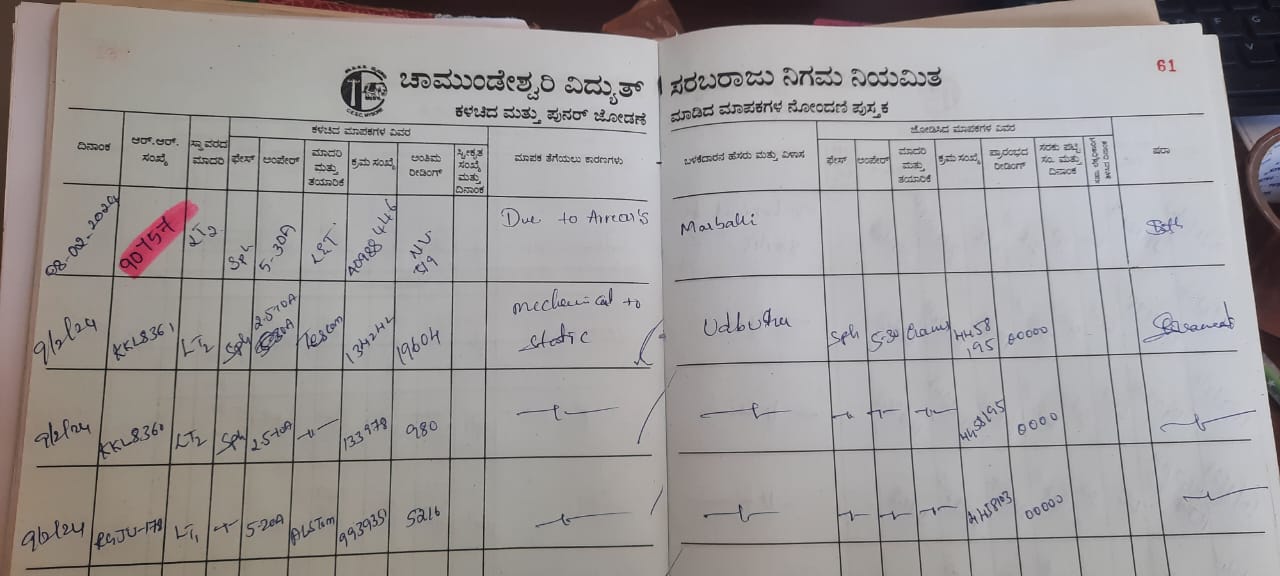 61
ಚಾಮುಂಡೇಶ್ವರಿ ವಿದ್ಯುತ್ ಸರಬರಾಜು ನಿಗಮ ನಿಯಮಿತ
ಕಳಚಿದ ಮತ್ತು ಪುನರ್ ಜೋಡಣೆ ಮಾಡಿದ ಮಾಪಕಗಳ ನೋಂದಣಿ ಪುಸ್ತಕ
ಕಳಚಿದ ಮಾಪಕಗಳ ವಿವರ ಜೋಡಿಸಿದ ಮಾಪಕಗಳ ವಿವರ
ದಿನಾಂಕ ಆರ್.ಆರ್. ಸಂಖ್ಯೆ ಸ್ಥಾವರದ ಮಾದರಿ ಫೇಸ್ ಅಂಪೇರ್ ಮಾದರಿ ಮತ್ತು ತಯಾರಿಕೆ ಕ್ರಮ ಸಂಖ್ಯೆ ಅಂತಿಮ ರೀಡಿಂಗ್ ಸ್ವೀಕೃತ ಸಂಖ್ಯೆ ಮತ್ತು ದಿನಾಂಕ ಮಾಪಕ ತೆಗೆಯಲು ಕಾರಣಗಳು ಬಳಕೆದಾರನ ಹೆಸರು ಮತ್ತು ವಿಳಾಸ ಫೇಸ್ ಅಂಪೇರ್ ಮಾದರಿ ಮತ್ತು ತಯಾರಿಕೆ ಕ್ರಮ ಸಂಖ್ಯೆ ಪ್ರಾರಂಭದ ರೀಡಿಂಗ್ ಸರಕು ಪಟ್ಟಿ ಸಂ. ಮತ್ತು ದಿನಾಂಕ ಷರಾ
08-02-2024 90757 LT2 Sph 5-30A L&T 40988446 Due to Arrear's Marballi
9/2/24 KKL8361 LT2 Sph 2.5-10A 134242 19604 mechanical to static Sph 5-30 4458195 00000
9/2/24 KKL8360 LT2 Sph 2.5-10A 133978 980 0000
9/2/24 LT1 5-20A ALSTom 9939351 5216 00000